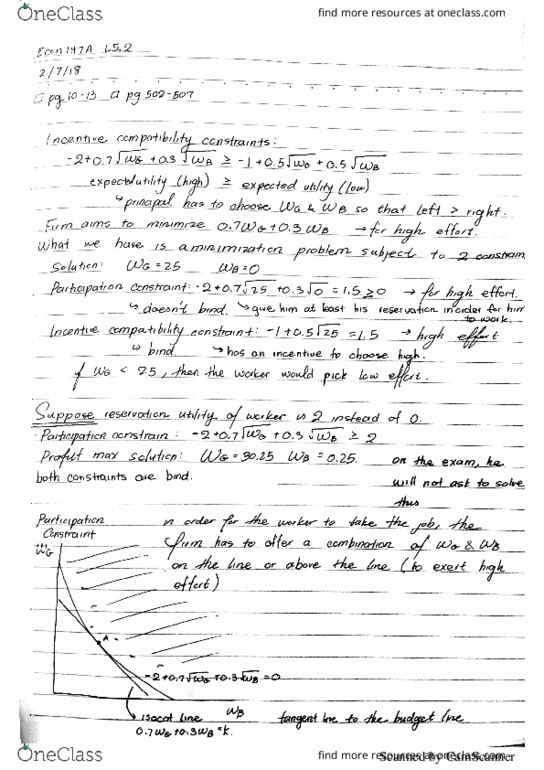 OneClass
find more resources at oneclass.com
Econ 147A L5.2
2/7/18
pg 10-13 pg 502-507
Incentive compatibility constraints:
-2+0.7√WG + 0.3 √WB ≥ -1 + 0.5√WG + 0.5 √WB
expected utility (high) ≥ expected utility (low)
↳ principal has to choose WG & WB so that left > right.
Firm aims to minimize 0.7WG + 0.3 WB → for high effort.
What we have is a minimization problem subject to 2 constrain
Solution: WG = 25 WB = 0
Participation constraint: -2+0.7√25 + 0.3√0 = 1.5 ≥ 0 → for high effort.
↳ doesn't bind. ↳ give him at least his reservation in order for him to work.
Incentive compatibility constraint: -1+0.5√25 = 1.5 → high effort
↳ bind ↳ has an incentive to choose high.
if WG < 25, then the worker would pick low effort.
Suppose reservation utility of worker is 2 instead of 0.
Participation constrain: -2+0.7√WG + 0.3 √WB ≥ 2
Profit max solution: WG = 30.25 WB = 0.25.
both constraints are bind.
on the exam, he
will not ask to solve
this
Participation
Constraint
in order for the worker to take the job, the
firm has to offer a combination of WG & WB
on the line or above the line (to exert high
effort)
WG
A
-2+0.7√WG + 0.3√WB = 0
WB
isocost line
0.7WG + 0.3WB = k.
tangent line to the budget line
OneClass
find more resources at oneclass.com
Scanned by CamScanner